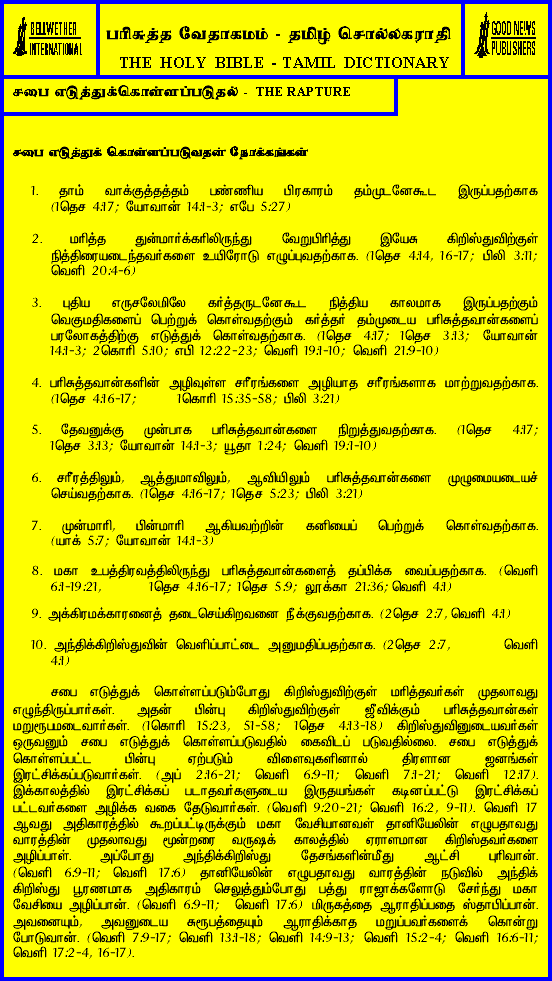 BELLWETHER
INTERNATIONAL
பரிசுத்த வேதாகமம் - தமிழ் சொல்லகராதி
THE HOLY BIBLE - TAMIL DICTIONARY
GOOD NEWS
PUBLISHERS
சபை எடுத்துக்கொள்ளப்படுதல் - THE RAPTURE
சபை எடுத்துக் கொள்ளப்படுவதன் நோக்கங்கள்
1. தாம் வாக்குத்தத்தம் பண்ணிய பிரகாரம் தம்முடனேகூட இருப்பதற்காக
(1தெச 4:17; யோவான் 14:1-3; எபே 5:27)
2. மரித்த துன்மார்க்கரிலிருந்து வேறுபிரித்து இயேசு கிறிஸ்துவிற்குள்
நித்திரையடைந்தவர்களை உயிரோடு எழுப்புவதற்காக. (1தெச 4:14, 16-17; பிலி 3:11;
வெளி 20:4-6)
3. புதிய எருசலேமிலே கர்த்தருடனேகூட நித்திய காலமாக இருப்பதற்கும்
வெகுமதிகளைப் பெற்றுக் கொள்வதற்கும் கர்த்தர் தம்முடைய பரிசுத்தவான்களைப்
பரலோகத்திற்கு எடுத்துக் கொள்வதற்காக. (1தெச 4:17; 1தெச 3:13; யோவான்
14:1-3; 2கொரி 5:10; எபி 12:22-23; வெளி 19:1-10; வெளி 21:9-10)
4. பரிசுத்தவான்களின் அழிவுள்ள சரீரங்களை அழியாத சரீரங்களாக மாற்றுவதற்காக.
(1தெச 4:16-17; 1கொரி 15:35-58; பிலி 3:21)
5. தேவனுக்கு முன்பாக பரிசுத்தவான்களை நிறுத்துவதற்காக. (1தெச 4:17;
1தெச 3:13; யோவான் 14:1-3; யூதா 1:24; வெளி 19:1-10)
6. சரீரத்திலும், ஆத்துமாவிலும், ஆவியிலும் பரிசுத்தவான்களை முழுமையடையச்
செய்வதற்காக. (1தெச 4:16-17; 1தெச 5:23; பிலி 3:21)
7. முன்மாரி, பின்மாரி ஆகியவற்றின் கனியைப் பெற்றுக் கொள்வதற்காக.
(யாக் 5:7; யோவான் 14:1-3)
8. மகா உபத்திரவத்திலிருந்து பரிசுத்தவான்களைத் தப்பிக்க வைப்பதற்காக. (வெளி
6:1-19:21, 1தெச 4:16-17; 1தெச 5:9; லூக்கா 21:36; வெளி 4:1)
9. அக்கிரமக்காரனைத் தடைசெய்கிறவனை நீக்குவதற்காக. (2தெச 2:7, வெளி 4:1)
10. அந்திக்கிறிஸ்துவின் வெளிப்பாட்டை அனுமதிப்பதற்காக. (2தெச 2:7, வெளி
4:1)
சபை எடுத்துக் கொள்ளப்படும்போது கிறிஸ்துவிற்குள் மரித்தவர்கள் முதலாவது
எழுந்திருப்பார்கள். அதன் பின்பு கிறிஸ்துவிற்குள் ஜீவிக்கும் பரிசுத்தவான்கள்
மறுரூபமடைவார்கள். (1கொரி 15:23, 51-58; 1தெச 4:13-18) கிறிஸ்துவினுடையவர்கள்
ஒருவனும் சபை எடுத்துக் கொள்ளப்படுவதில் கைவிடப் படுவதில்லை. சபை எடுத்துக்
கொள்ளப்பட்ட பின்பு ஏற்படும் விளைவுகளினால் திரளான ஜனங்கள்
இரட்சிக்கப்படுவார்கள். (அப் 2:16-21; வெளி 6:9-11; வெளி 7:1-21; வெளி 12:17).
இக்காலத்தில் இரட்சிக்கப் படாதவர்களுடைய இருதயங்கள் கடினப்பட்டு இரட்சிக்கப்
பட்டவர்களை அழிக்க வகை தேடுவார்கள். (வெளி 9:20-21; வெளி 16:2, 9-11). வெளி 17
ஆவது அதிகாரத்தில் கூறப்பட்டிருக்கும் மகா வேசியானவள் தானியேலின் எழுபதாவது
வாரத்தின் முதலாவது மூன்றரை வருஷக் காலத்தில் ஏராளமான கிறிஸ்தவர்களை
அழிப்பாள். அப்போது அந்திக்கிறிஸ்து தேசங்களின்மீது ஆட்சி புரிவான்.
(வெளி 6:9-11; வெளி 17:6) தானியேலின் எழுபதாவது வாரத்தின் நடுவில் அந்திக்
கிறிஸ்து பூரணமாக அதிகாரம் செலுத்தும்போது பத்து ராஜாக்களோடு சேர்ந்து மகா
வேசியை அழிப்பான். (வெளி 6:9-11; வெளி 17:6) மிருகத்தை ஆராதிப்பதை ஸ்தாபிப்பான்.
அவனையும், அவனுடைய சுரூபத்தையும் ஆராதிக்காத மறுப்பவர்களைக் கொன்று
போடுவான். (வெளி 7:9-17; வெளி 13:1-18; வெளி 14:9-13; வெளி 15:2-4; வெளி 16:6-11;
வெளி 17:2-4, 16-17).